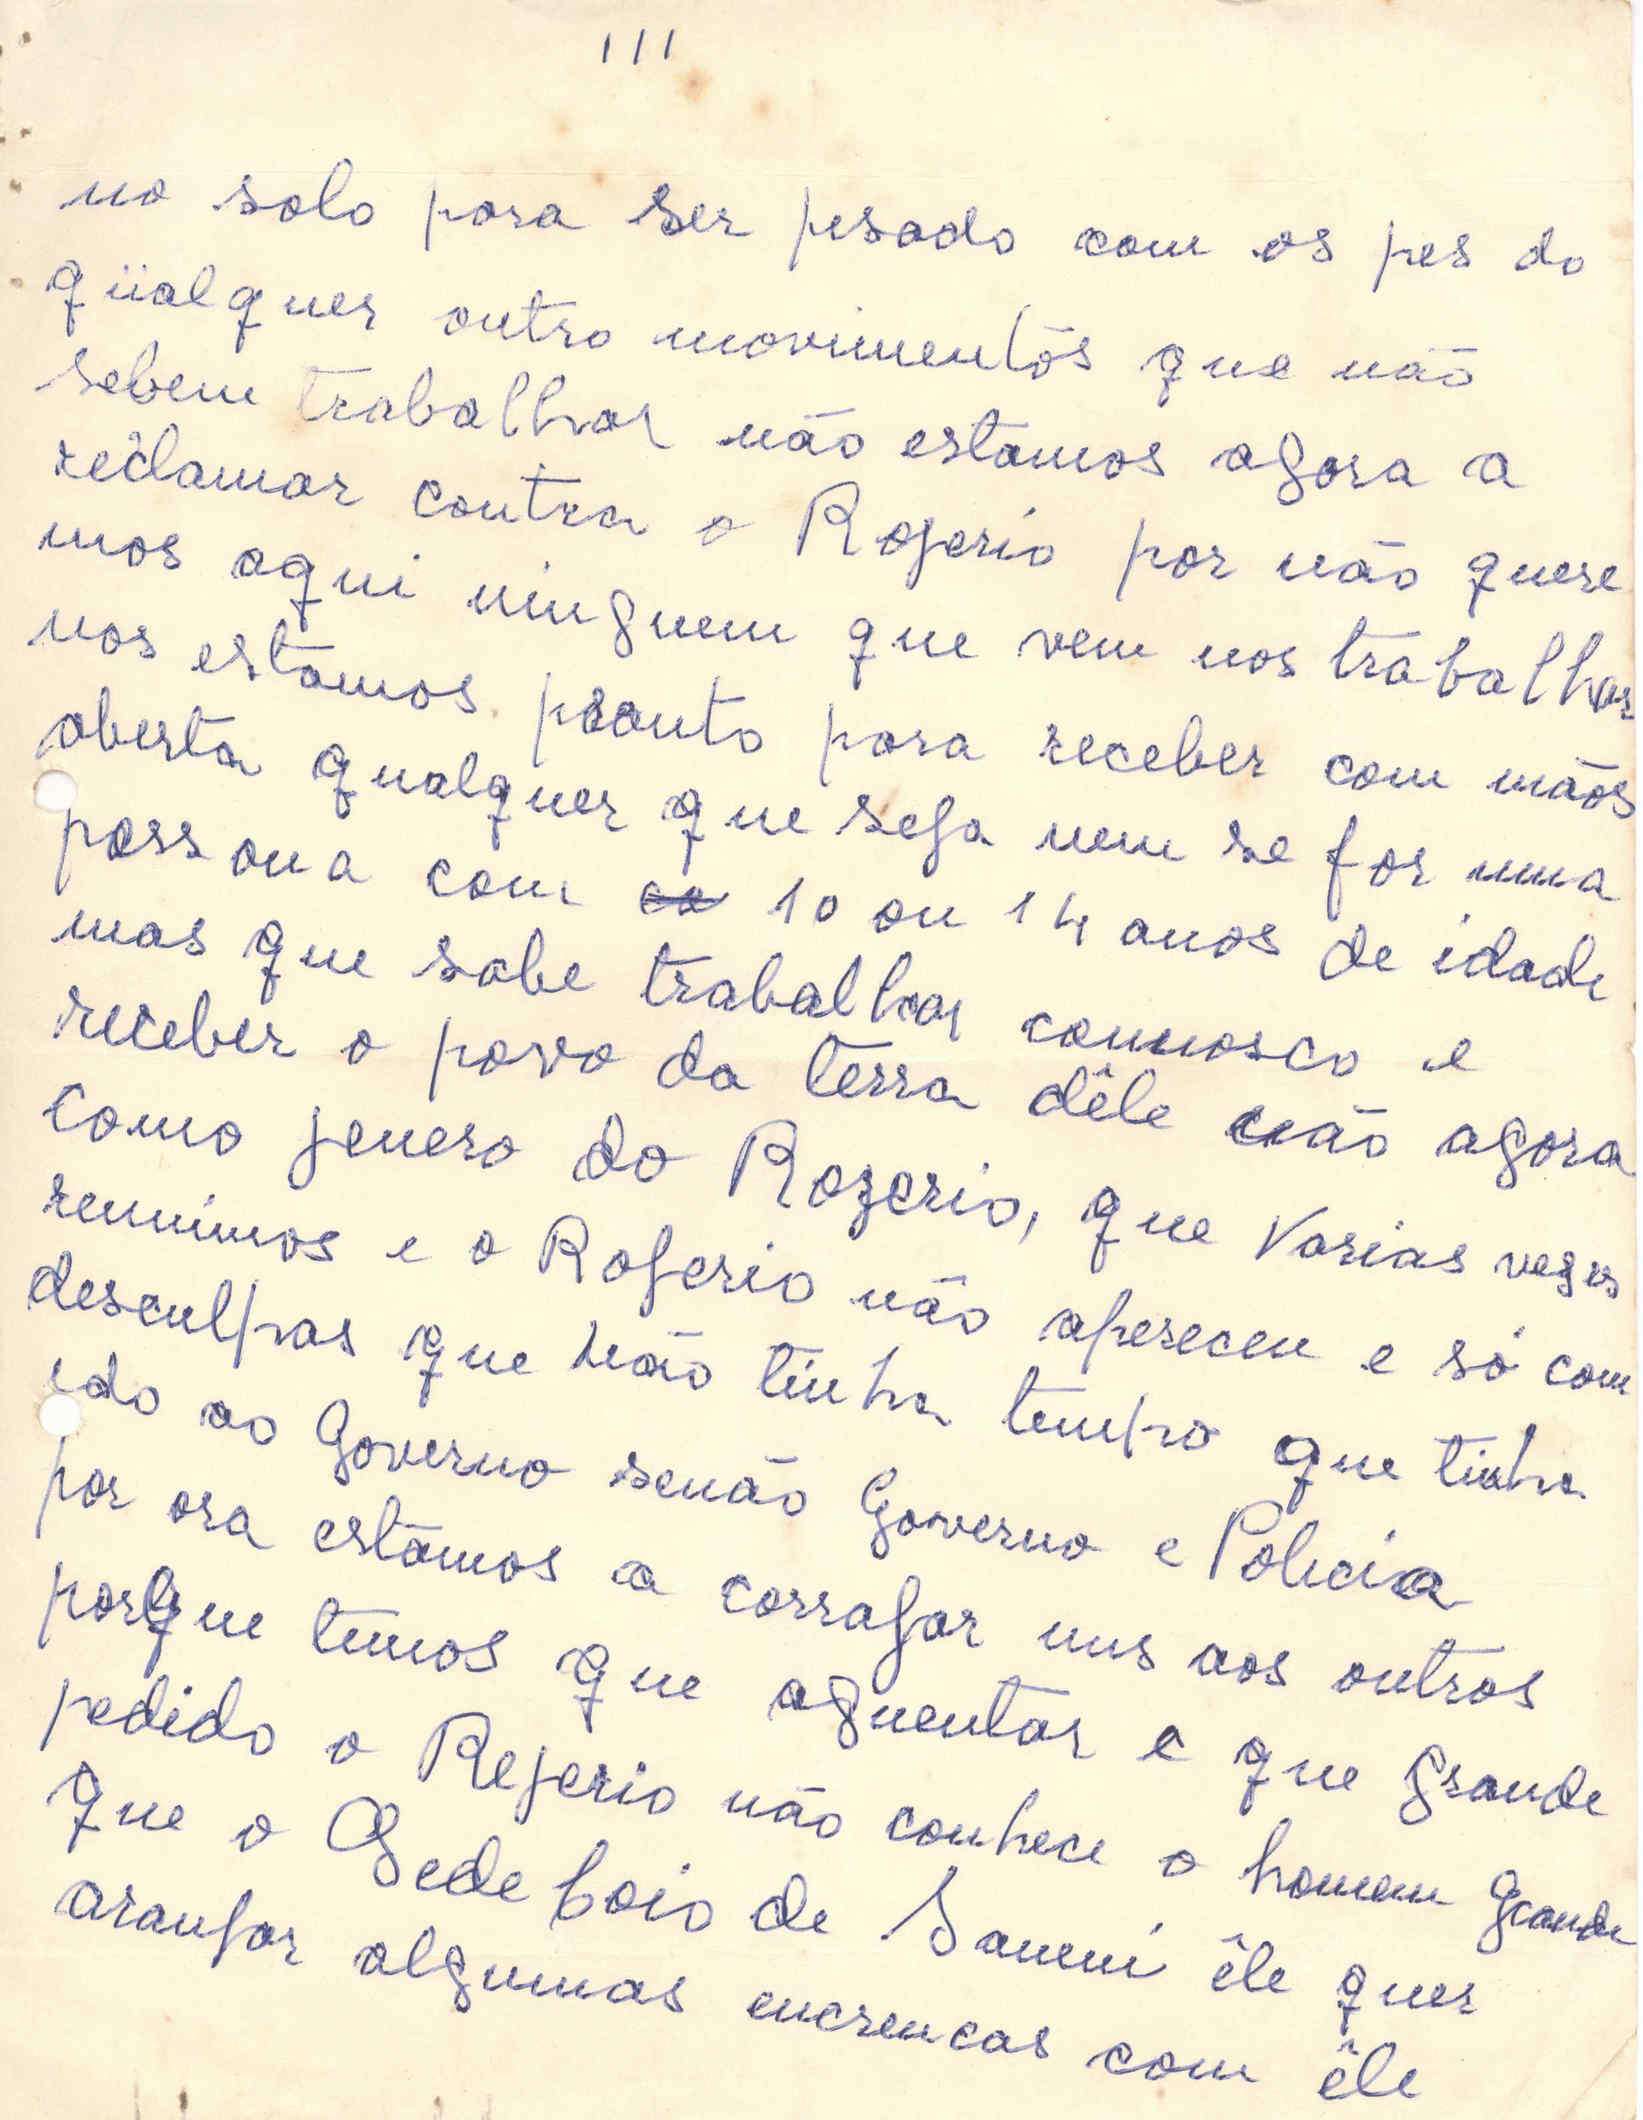 III
no solo para ser pesado com os pes do
qüalquer outro movimentõs que não
sebem trabalhar não estamos agora a
reclamar contra o Rogerio por não quere
mos aqui ninguem que vem nos trabalhar
nos estamos pronto para receber com mãos
aberta qualquer que seja nem se for uma
possoua com 10 ou 14 anos de idade
mas que sabe trabalhar connosco e
receber o povo da terra dêle não agora
como genero do Rozerio, que varias vezes
reunimos e o Rogerio não apereceu e só com
desculpas que não tinha tempo que tinha
ido ao Governo senão Governo e Policia
por ora estamos a corrajar uns aos outros
porque temos que aguentar e que grande
pedido o Regerio não conhece o homem grande
que o de Sanem êle quer
aranjar algumas encrencas com êle